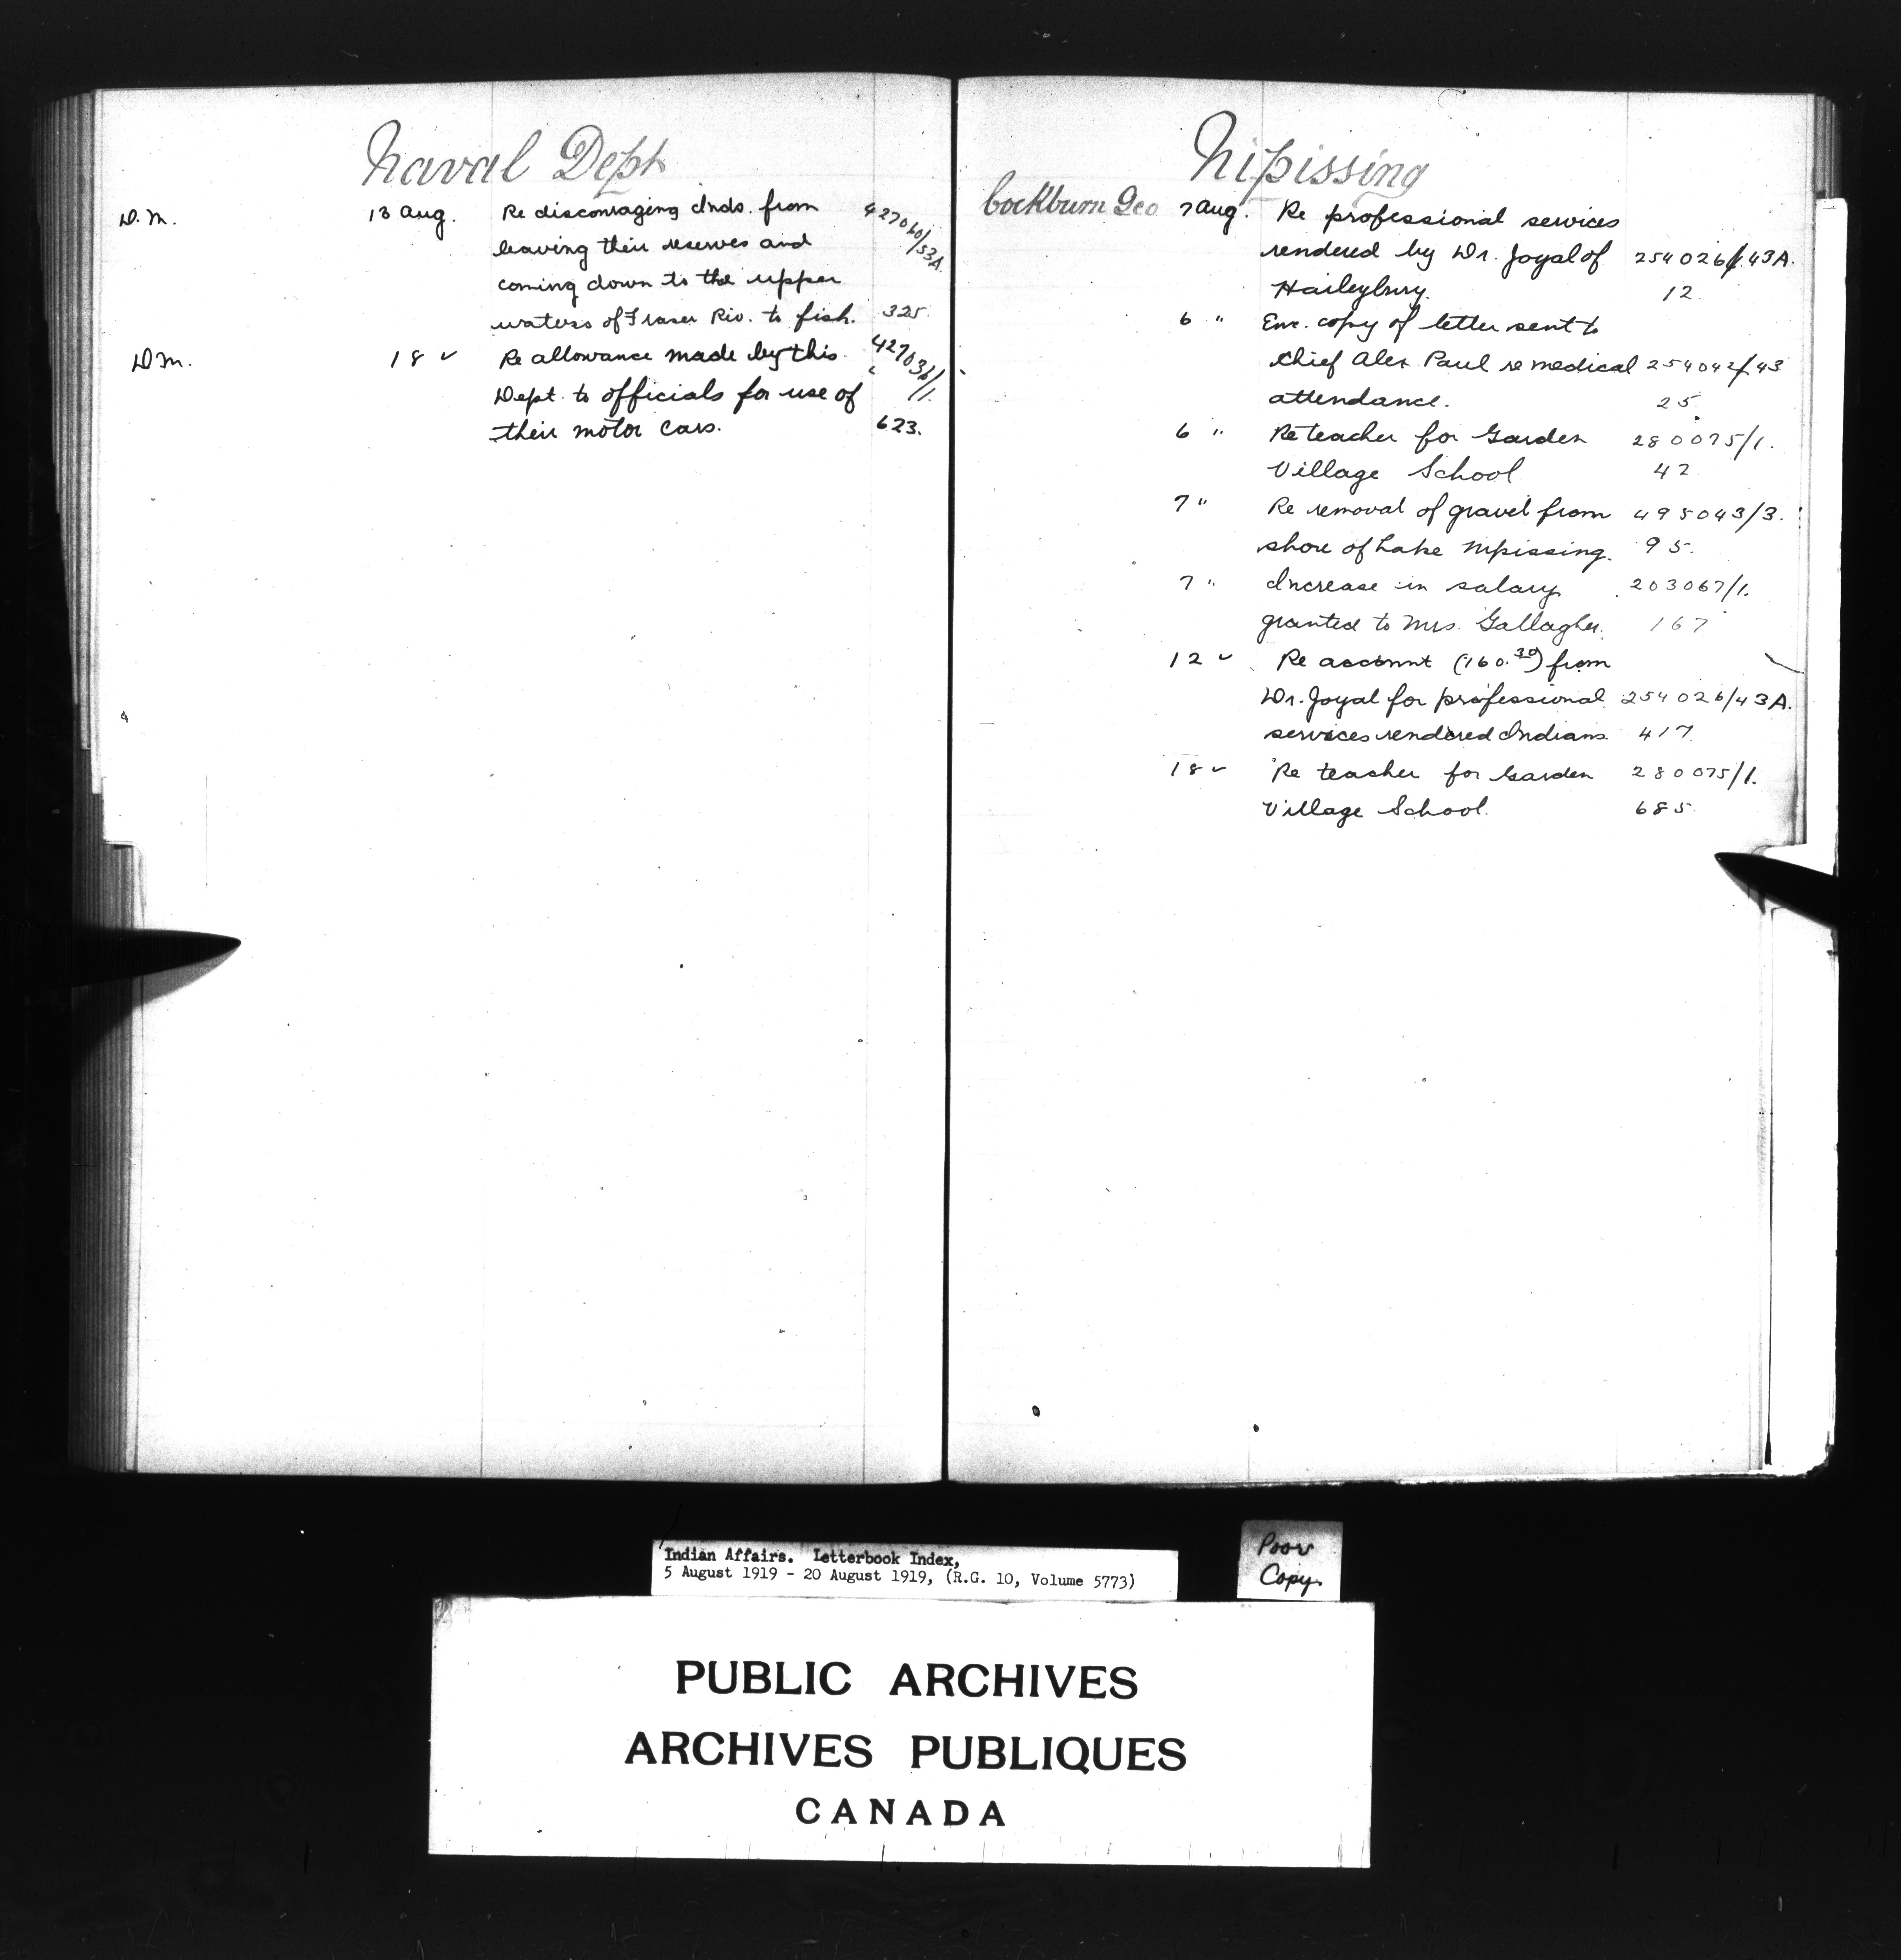 Naval Dept
D.M. 13 Aug. Re discouraging Inds. from 427060/53A.
leaving their reserves and
coming down to the upper
waters of Fraser Riv. to fish. 325.
D.M. 18 " Re allowance made by this 427036/1.
Dept. to officials for use of
their motor cars. 623.
Nipissing
Cockburn Geo 7 Aug. Re professional services
rendered by Dr. Joyal of 254026/43A.
Haileybury. 12
6 " Enc. copy of letter sent to
Chief Alex Paul re medical 254042/43
attendance. 25
6 " Re teacher for Garden 280075/1.
Village School 42
7 " Re removal of gravel from 498043/3.
shore of Lake Nipissing. 95.
7 " Increase in salary 203067/1.
granted to Mrs. Gallagher. 167
12 " Re account (160.30) from
Dr. Joyal for professional 254026/43A.
services rendered Indians. 417
18 " Re teacher for Garden 280075/1.
Village School. 685
Indian Affairs. Letterbook Index,
5 August 1919 - 20 August 1919, (R.G. 10, Volume 5773)
Poor
Copy.
PUBLIC ARCHIVES
ARCHIVES PUBLIQUES
CANADA